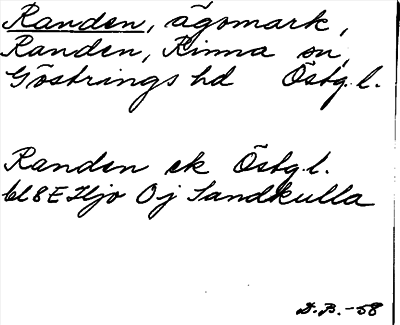 Randen, ägomark,
Randen, Rinna sn,
Göstrings hd Östg.l.
Randen ek Östg.l.
bl 8E Hjo Oj Sandkulla
D.B.-58